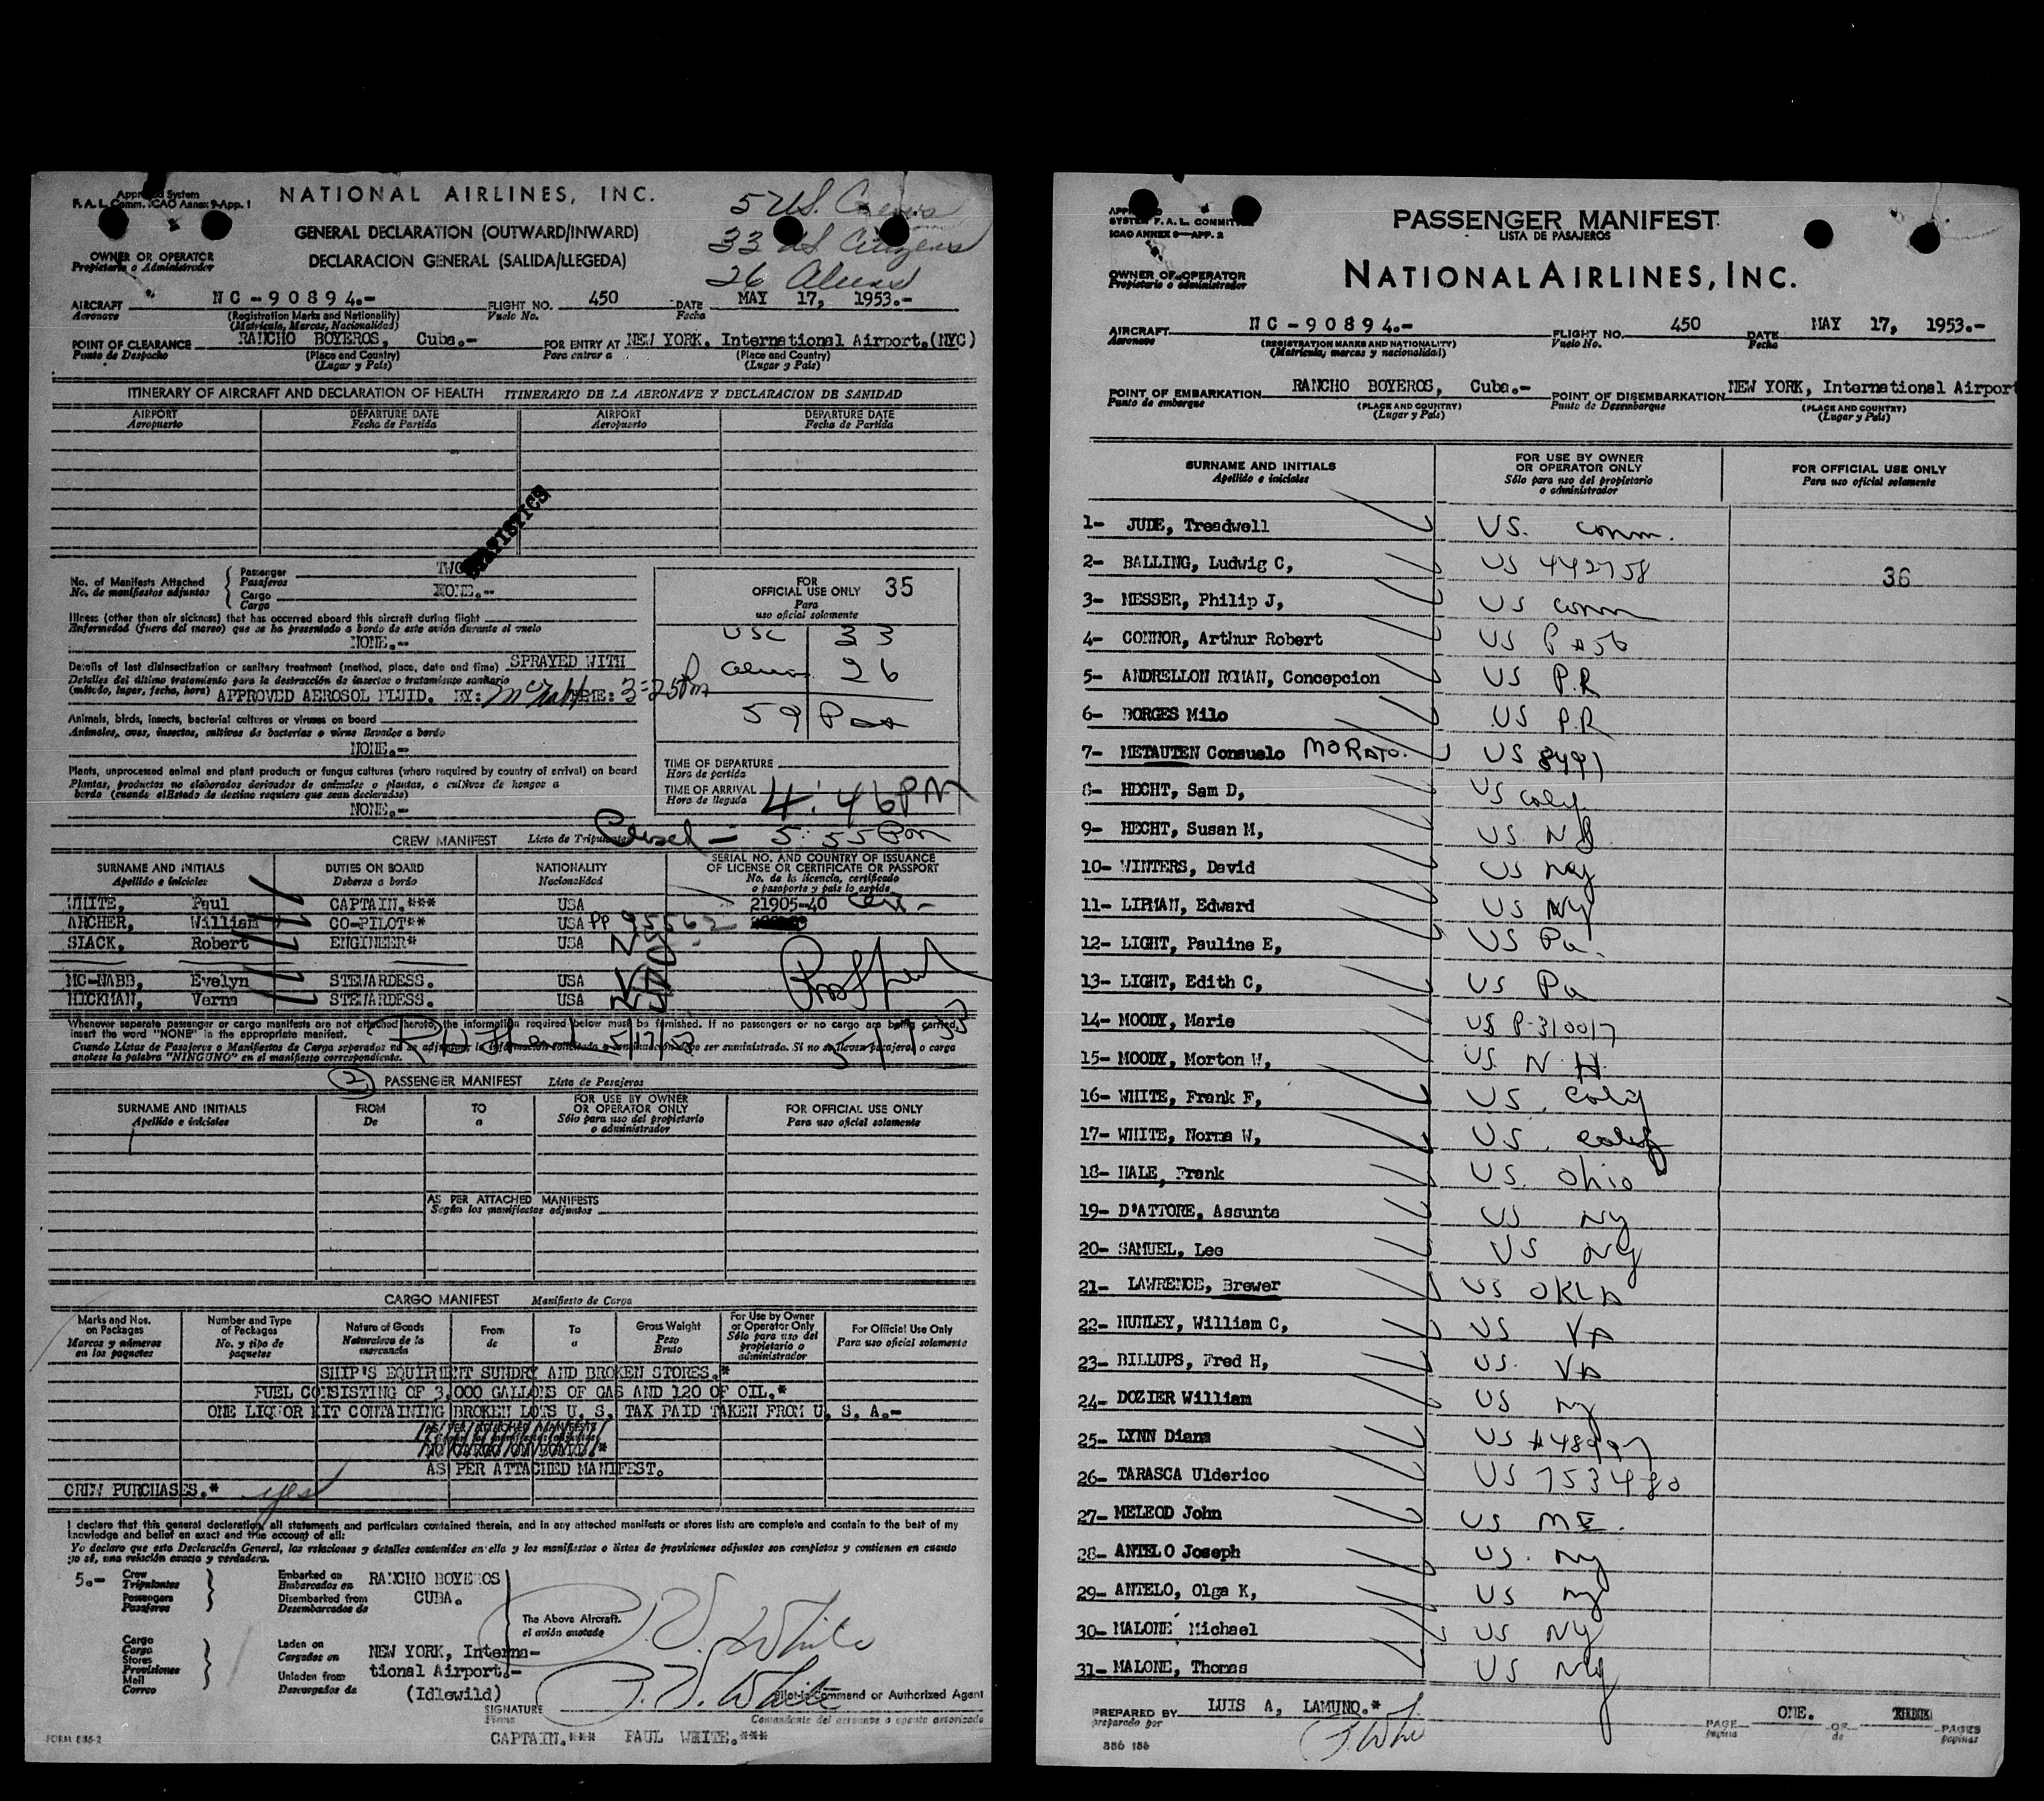 Approved System
F. A. L. Comm. ICAO Annex 9-App. 1
NATIONAL AIRLINES, INC.
5 U.S.
33 US Citizens
26 Aliens
GENERAL DECLARATION (OUTWARD/INWARD)
DECLARACION GENERAL (SALIDA/LLEGEDA)
OWNER OR OPERATOR
Propietario o Administrador
AIRCRAFT NC-90894.- FLIGHT NO. 450 DATE MAY 17, 1953.-
Aeronave (Registration Marks and Nationality) Vuelo No. Fecha
(Matricula, Marcas, Nacionalidad)
POINT OF CLEARANCE RANCHO BOYEROS, Cuba.- FOR ENTRY AT NEW YORK, International Airport.(NYC)
Punto de Despacho (Place and Country) Para entrar a (Place and Country)
(Lugar y Pais) (Lugar y Pais)
ITINERARY OF AIRCRAFT AND DECLARATION OF HEALTH ITINERARIO DE LA AERONAVE Y DECLARACION DE SANIDAD
AIRPORT DEPARTURE DATE AIRPORT DEPARTURE DATE
Aeropuerto Fecha de Partida Aeropuerto Fecha de Partida
STATISTICS
No. of Manifests Attached Passenger TWO
No. de manifiestos adjuntos Pasajeros
Cargo NONE.-
Carga
Illness (other than air sickness) that has occurred aboard this aircraft during flight
Enfermedad (fuera del mareo) que se ha presentado a bordo de este avión durante el vuelo
NONE.-
Details of last disinsectization or sanitary treatment (method, place, date and time) SPRAYED WITH
Detalles del último tratamiento para la destracción de insectos o tratamiento sanitario
(método, lugar, fecha, hora) APPROVED AEROSOL FLUID. BY: McNabb TIME: 3:25 Pm
Animals, birds, insects, bacterial cultures or viruses on board
Animales, aves, insectos, cultivos de bacterias o virus llevados a bordo
NONE.-
Plants, unprocessed animal and plant products or fungus cultures (where required by country of arrival) on board
Plantas, productos no elaborados derivados de animales o plantas, o cultivos de hongos a
bordo (cuando el Estado de destino requiera que sean declarados)
NONE.-
FOR
OFFICIAL USE ONLY 35
Para
uso oficial solamente
USC 33
26
59 Pas
TIME OF DEPARTURE
Hora de partida
TIME OF ARRIVAL 4:46 PM
Hora de llegada
5:55 Pm
CREW MANIFEST Lista de Tripulantes
SURNAME AND INITIALS DUTIES ON BOARD NATIONALITY SERIAL NO. AND COUNTRY OF ISSUANCE
OF LICENSE OR CERTIFICATE OR PASSPORT
Apellido e iniciales Deberes a bordo Nacionalidad No. de la licencia, certificado
o pasaporte y pais lo expide
WHITE, Paul CAPTAIN.*** USA 21905-40
ARCHER, William CO-PILOT** USA PP 95562
SIACK, Robert ENGINEER* USA
MC-NABB, Evelyn STEWARDESS. USA
HICKMAN, Verna STEWARDESS. USA
Whenever separate passenger or cargo manifests are not attached hereto, the information required below must be furnished. If no passengers or no cargo are being carried,
insert the word "NONE" in the appropriate manifest.
Cuando Listas de Pasajeros o Manifiestos de Carga separados no se adjunten, la información solicitada a continuación debe ser suministrada. Si no se llevan pasajeros o carga
anotese la palabra "NINGUNO" en el manifiesto correspondiente.
5/17/53
2 PASSENGER MANIFEST Lista de Pasajeros
SURNAME AND INITIALS FROM TO FOR USE BY OWNER OR OPERATOR ONLY FOR OFFICIAL USE ONLY
Apellido e iniciales De a Sólo para uso del propietario o administrador Para uso oficial solamente
AS PER ATTACHED MANIFESTS
Según los manifiestos adjuntos
CARGO MANIFEST Manifiesto de Carga
Marks and Nos. on Packages Number and Type of Packages Nature of Goods From To Gross Weight For Use by Owner or Operator Only For Official Use Only
Marcas y números en los paquetes No. y tipo de paquetes Naturaleza de la mercancia de a Peso Bruto Sólo para uso del propietario o administrador Para uso oficial solamente
SHIP'S EQUIPMENT SUNDRY AND BROKEN STORES.*
FUEL CONSISTING OF 3,000 GALLONS OF GAS AND 120 OF OIL.*
ONE LIQUOR KIT CONTAINING BROKEN LOTS U. S. TAX PAID TAKEN FROM U. S. A.-
AS PER ATTACHED MANIFEST.
CREW PURCHASES.* yes
I declare that this general declaration, all statements and particulars contained therein, and in any attached manifests or stores lists are complete and contain to the best of my
knowledge and belief an exact and true account of all:
Yo declaro que esta Declaración General, las relaciones y detalles contenidos en ella y los manifiestos o listas de provisiones adjuntos son completos y contienen en cuanto
yo sé, una relación exacta y verdadera.
5.- Crew Embarked on RANCHO BOYEROS
Tripulantes Embarcados en
Passengers Disembarked from CUBA.
Pasajeros Desembarcados de
The Above Aircraft.
el avión anotado
Cargo Laden on NEW YORK, Interna-
Carga Cargados en
Stores tional Airport.-
Provisiones Unladen from
Mail Descargados de (Idlewild)
Correo
P. V. White
P. V. White
Pilot-in-Command or Authorized Agent
SIGNATURE
Firma Comandante del aeronave o agente autorizado
CAPTAIN.*** PAUL WHITE.***
FORM 886-2
APPROVED
SYSTEM F. A. L. COMMITTEE
ICAO ANNEX 9-APP. 2
PASSENGER MANIFEST
LISTA DE PASAJEROS
OWNER OF OPERATOR
Propietario o administrador
NATIONAL AIRLINES, INC.
AIRCRAFT NC-90894.- FLIGHT NO. 450 DATE MAY 17, 1953.-
Aeronave (REGISTRATION MARKS AND NATIONALITY) Vuelo No. Fecha
(Matricula, marcas y nacionalidad)
POINT OF EMBARKATION RANCHO BOYEROS, Cuba.- POINT OF DISEMBARKATION NEW YORK, International Airport
Punto de embarque (PLACE AND COUNTRY) Punto de Desembarque (PLACE AND COUNTRY)
(Lugar y Pais) (Lugar y Pais)
SURNAME AND INITIALS FOR USE BY OWNER OR OPERATOR ONLY FOR OFFICIAL USE ONLY
Apellido e iniciales Sólo para uso del propietario o administrador Para uso oficial solamente
1- JUDE, Treadwell US. conn.
2- BALLING, Ludwig C, US 442758 36
3- MESSER, Philip J, US conn
4- CONNOR, Arthur Robert US
5- ANDRELLON ROMAN, Concepcion US P.R
6- BORGES Milo US P.R
7- METAUTEN Consuelo MORATO. US 8491
8- HECHT, Sam D, US Calif
9- HECHT, Susan M, US
10- WINTERS, David US NY
11- LIPMAN, Edward US NY
12- LIGHT, Pauline E, US Pa.
13- LIGHT, Edith C, US Pa
14- MOODY, Marie US P-310017
15- MOODY, Morton W, US. N.H.
16- WHITE, Frank F, US. Calif
17- WHITE, Norma W, US. Calif
18- HALE, Frank US. Ohio
19- D'ATTORE, Assunta US NY
20- SAMUEL, Lee US NY
21- LAWRENCE, Brewer US OKLA
22- HUNLEY, William C, US VA
23- BILLUPS, Fred H, US. VA
24- DOZIER William US NY
25- LYNN Diana US #48997
26- TARASCA Ulderico US 753480
27- MELEOD John US ME.
28- ANTELO Joseph US. NY
29- ANTELO, Olga K, US NY
30- MALONE Michael US NY
31- MALONE, Thomas US NY
PREPARED BY LUIS A, LAMUNO.* PAGE ONE. OF PAGES
preparado por Página de páginas
P. White
886 186